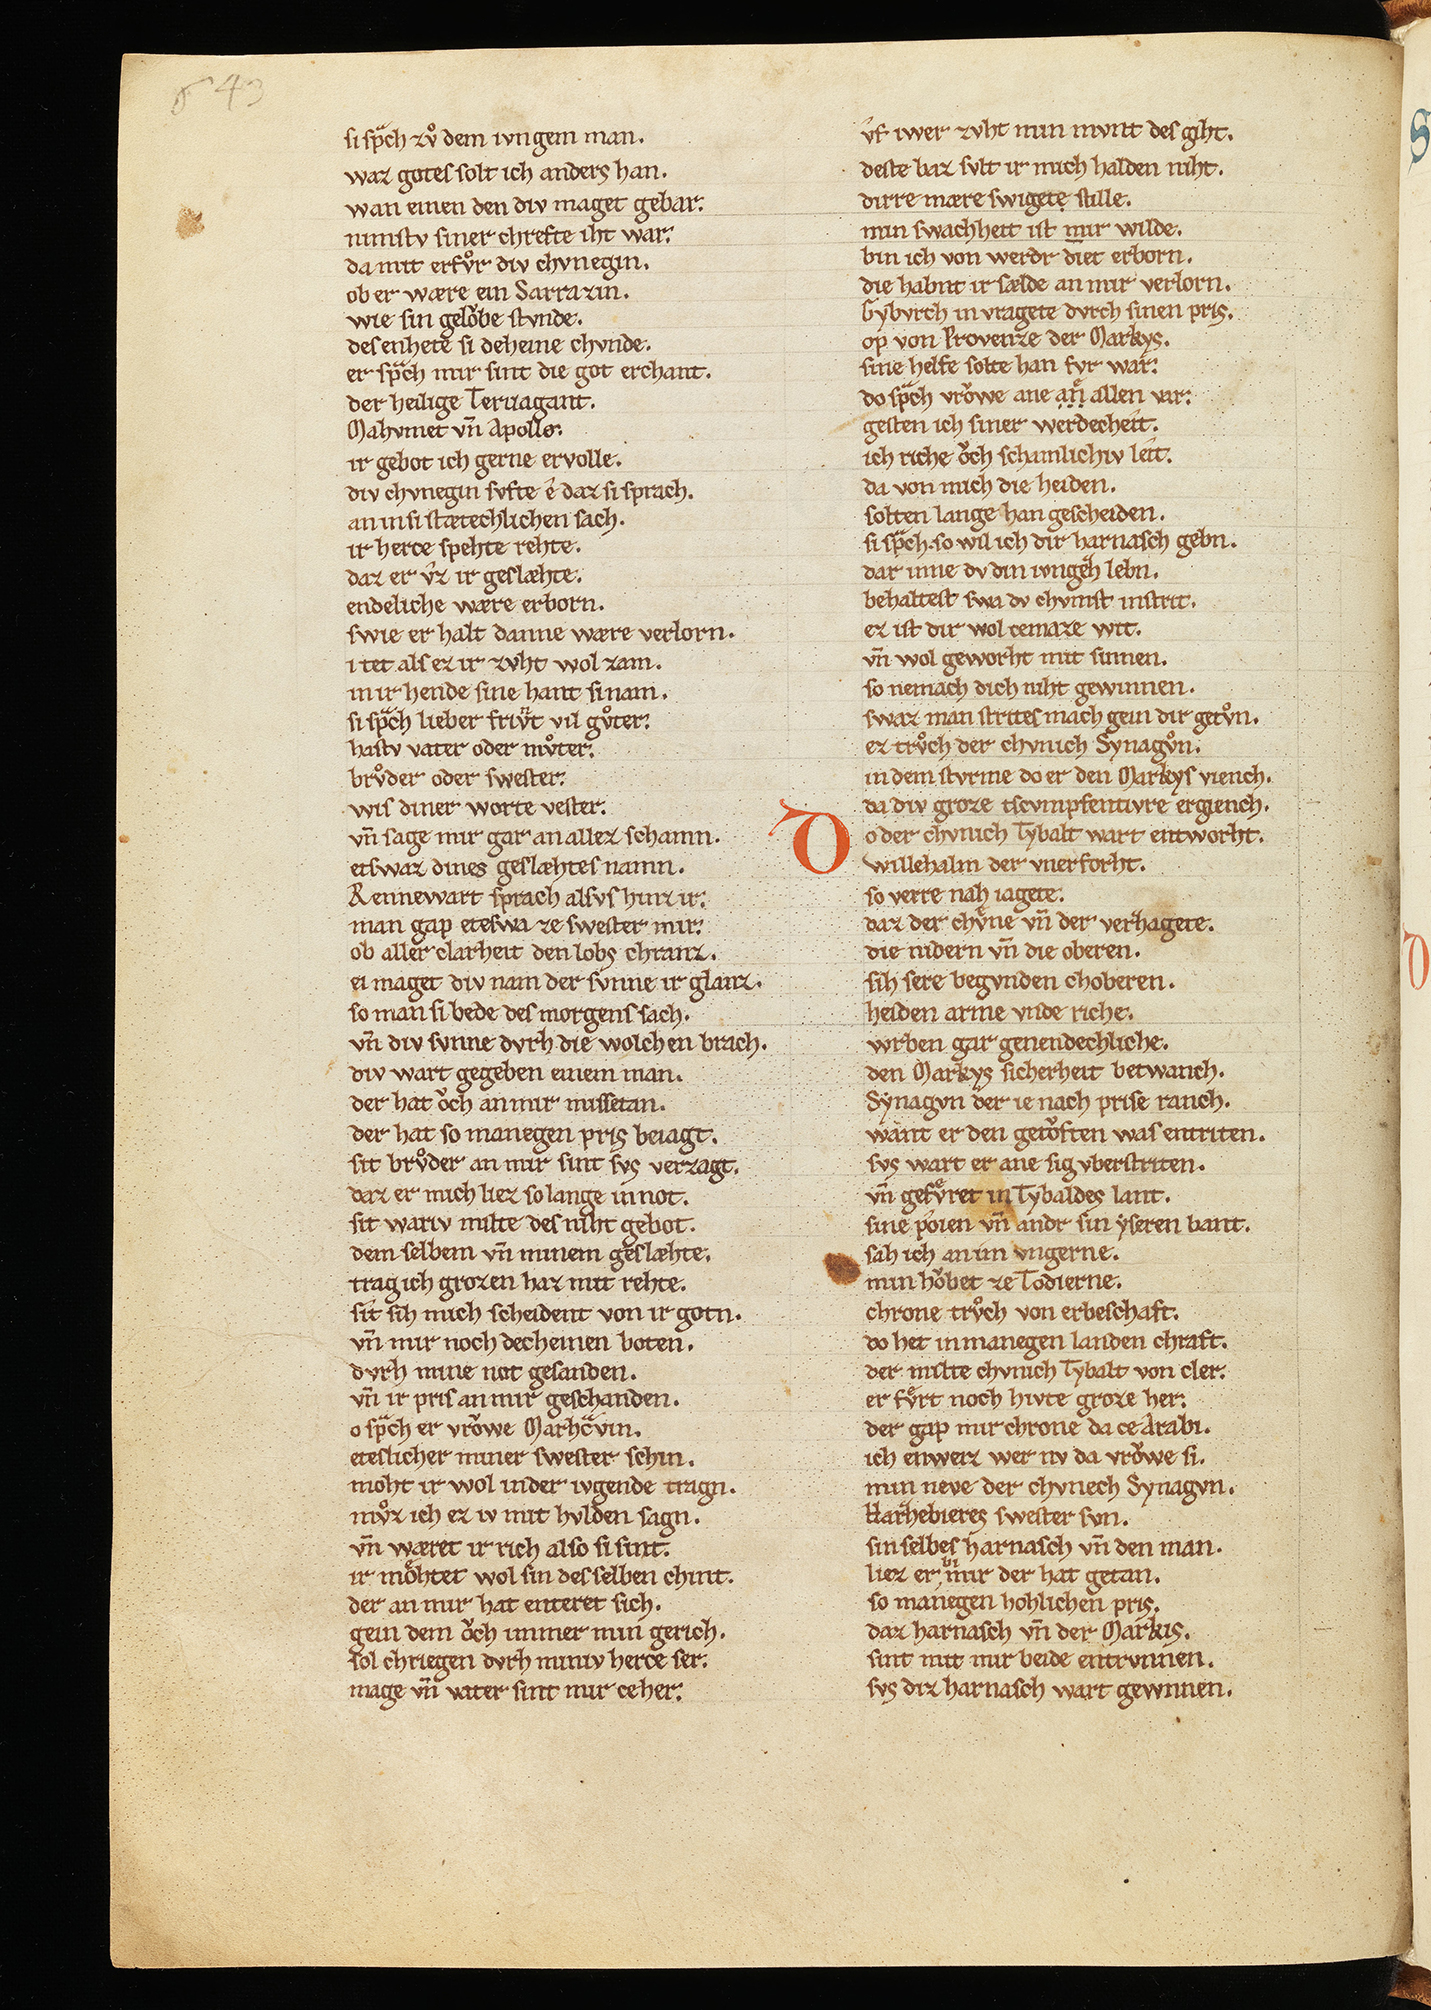 σ 43
si spͣch zvͦ dem ivngem man.
waz gotes solt ich anders han.
wan einen den div maget gebar.
nimstv siner chrefte iht war.
da mit erfvͦr div chvnegin.
ob er wære ein Sarrazin.
wie sin gelǒbe stvnde.
des enhete si deheine chvnde.
er spͣch mir sint die got erchant.
der heilige Teruagant.
Mahvmet vn̄ Apollo.
ir gebot ich gerne ervolle.
div chvnegin svfte ê daz si sprach.
an in si stætechlichen sach.
ir herce spehte rehte.
daz er v̂z ir geslæhte.
endeliche wære erborn.
swie er halt danne wære verlorn.
i tet als ez ir zvht wol zam.
in ir hende sine hant si nam.
si spͣch lieber frivͥt vil gvͦter.
hastv vater oder mvͦter.
brvͦder oder swester.
wis diner worte vester.
vn̄ sage mir gar an allez schamn.
etswaz dines geslæhtes namn.
Rennewart sprach alsvs hinz ir.
man gap eteswa ze swester mir.
ob aller clarheit den lobs chranz.
ei maget div nam der svnne ir glanz.
so man si bede des morgens sach.
vn̄ div svnne dvrh die wolchen brach.
div wart gegeben einem man.
der hat ǒch an mir missetan.
der hat so manegen pris beiagt.
sit brvͦder an mir sint svs verzagt.
daz er mich liez so lange in not.
sit wariv milte des niht gebot.
dem selbem vn̄ minem geslæhte.
trag ich grozen haz mit rehte.
sit sih mich scheident von ir gotn.
vn̄ mir noch decheinen boten.
dvrh mine not gesanden.
vn̄ ir pris an mir geschanden.
o spͣch er vrǒwe Marhcͣvin.
eteslicher miner swester schin.
moht ir wol inder ivgende tragn.
mvͦz ich ez iv mit hvlden sagn.
vn̄ wæret ir rich also si sint.
ir moͤhtet wol sin des selben chint.
der an mir hat enteret sich.
gein dem ǒch immer min gerich.
sol chriegen dvrh miniv herce ser.
mage vn̄ vater sint mir ce her.
v̂f iwer zvht min mvnt des giht.
deste baz svlt ir mich halden niht.
dirre mære swigete stille.
min swachheit ist mir wilde.
bin ich von werdr diet erborn.
die habnt ir sælde an mir verlorn.
Gybvrch in vragete dvrch sinen pris.
op von Provenze der Markys.
sine helfe solte han fvr war.
do spͣch vrǒwe ane an̄ allen var.
gesten ich siner werdecheit.
ich riche ǒch schamlichiv leit.
da von mich die heiden.
solten lange han gescheiden.
si spͣch. so wil ich dir harnasch gebn.
dar inne dv din ivngeͣh lebn.
behaltest swa dv chvmst in strit.
ez ist dir wol cemaze wit.
vn̄ wol geworht mit sinnen.
so nemach dich niht gewinnen.
swaz man strites mach gein dir getvͦn.
ez trvͦch der chvnich Synagvͦn.
in dem stvrme do er den Markys viench.
da div groze tscvmpfentivre ergiench.
Do der chvnich Tybalt wart entworht.
willehalm der vnerforht.
so verre nah iagete.
daz der chvͤne vn̄ der verhagete.
die nidern vn̄ die oberen.
sih sere begvnden choberen.
heiden arme vnde riche.
wrben gar genendechliche.
den Markys sicherheit betwanch.
Synagvn der ie nach prise ranch.
want er den getǒften was entriten.
svs wart er ane sig vberstriten.
vn̄ gefvͤret in Tybaldes lant.
sine poien vn̄ andr sin ÿseren bant.
sah ich an im vngerne.
min hǒbet ze Todierne.
chrone trvͦch von erbeschaft.
do het in manegen landen chraft.
der milte chvnich Tybalt von cler.
er fvͤrt noch hivte groze her.
der gap mir chrone da ce Arabi.
ich enweiz wer nv da vrǒwe si.
min neve der chvnech Synagvn.
Harhebieres swester svn.
sin selbes harnasch vn̄ den man.
liez er bi mir der hat getan.
so manegen hohlichen pris.
daz harnasch vn̄ der Markis.
sint mit mir beide entrvnnen.
svs diz harnasch wart gewnnen.